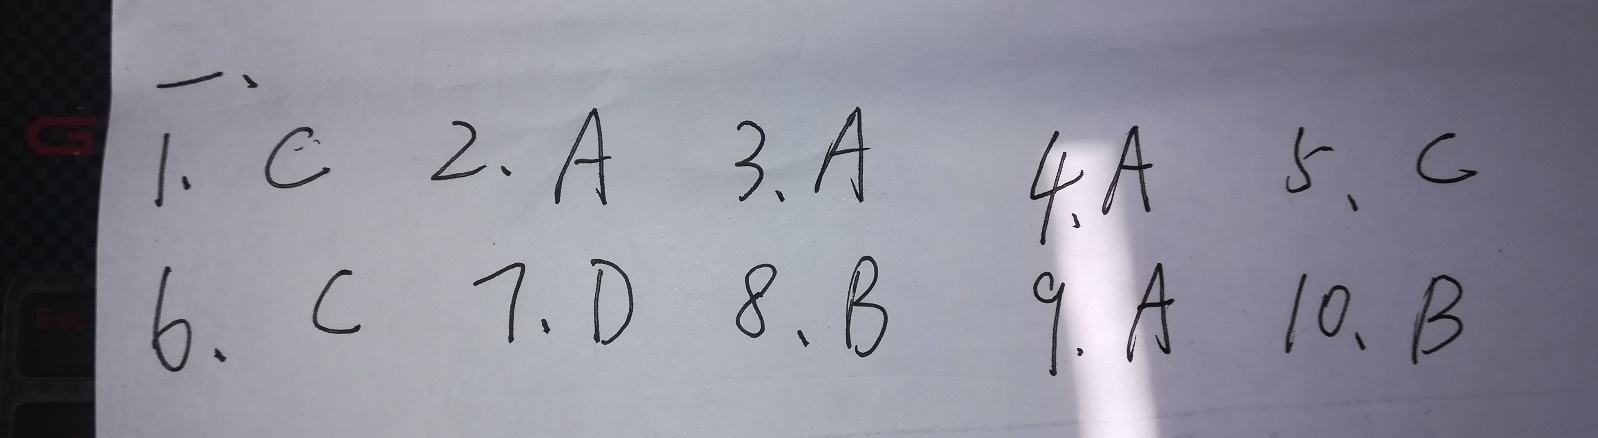 一、
1. C 2. A 3. A 4. A 5. C
6. C 7. D 8. B 9. A 10. B
Esc